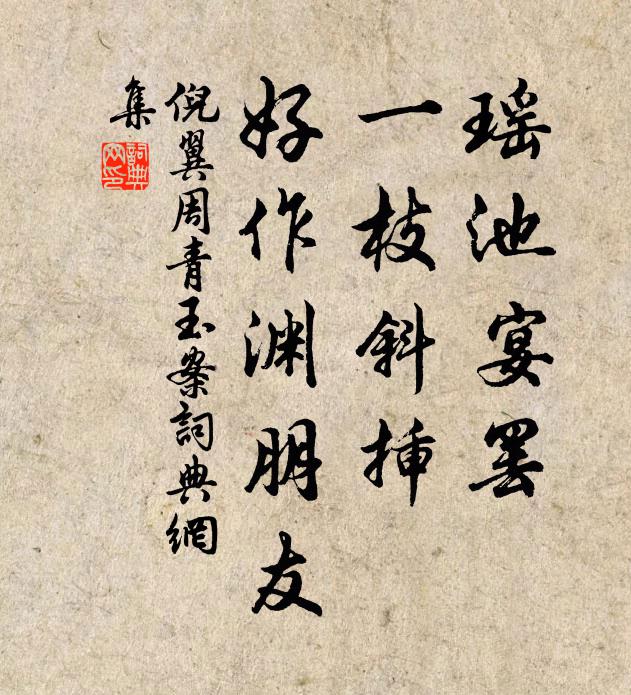 瑶池宴罢
一枝斜插
好作渊朋友
倪翼周青玉案詞典網
集
詞典网印